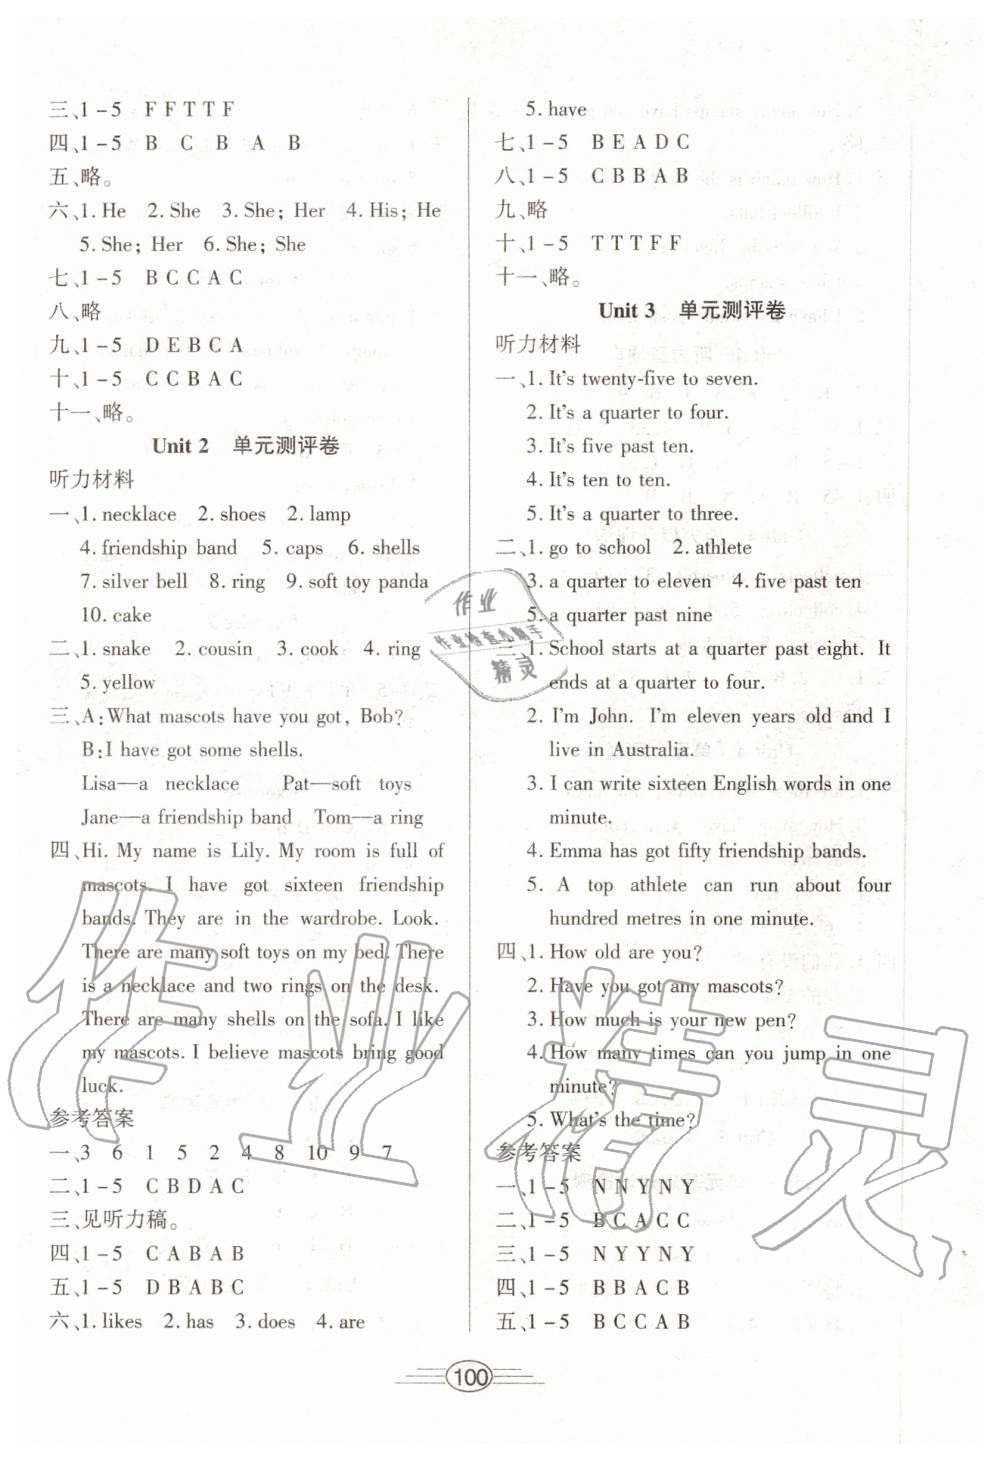 三、1-5 F F T T F
四、1-5 B C B A B
五、略。
六、1. He 2. She 3. She; Her 4. His; He
5. She; Her 6. She; She
七、1-5 B C C A C
八、略
九、1-5 D E B C A
十、1-5 C C B A C
十一、略。
Unit 2 单元测评卷
听力材料
一、1. necklace 2. shoes 2. lamp
4. friendship band 5. caps 6. shells
7. silver bell 8. ring 9. soft toy panda
10. cake
二、1. snake 2. cousin 3. cook 4. ring
5. yellow
三、A:What mascots have you got, Bob?
B:I have got some shells.
Lisa—a necklace Pat—soft toys
Jane—a friendship band Tom—a ring
四、Hi. My name is Lily. My room is full of
mascots. I have got sixteen friendship
bands. They are in the wardrobe. Look.
There are many soft toys on my bed. There
is a necklace and two rings on the desk.
There are many shells on the sofa. I like
my mascots. I believe mascots bring good
luck.
参考答案
一、3 6 1 5 2 4 8 10 9 7
二、1-5 C B D A C
三、见听力稿。
四、1-5 C A B A B
五、1-5 D B A B C
六、1. likes 2. has 3. does 4. are
5. have
七、1-5 B E A D C
八、1-5 C B B A B
九、略
十、1-5 T T T F F
十一、略。
Unit 3 单元测评卷
听力材料
一、1. It's twenty-five to seven.
2. It's a quarter to four.
3. It's five past ten.
4. It's ten to ten.
5. It's a quarter to three.
二、1. go to school 2. athlete
3. a quarter to eleven 4. five past ten
5. a quarter past nine
三、1. School starts at a quarter past eight. It
ends at a quarter to four.
2. I'm John. I'm eleven years old and I
live in Australia.
3. I can write sixteen English words in one
minute.
4. Emma has got fifty friendship bands.
5. A top athlete can run about four
hundred metres in one minute.
四、1. How old are you?
2. Have you got any mascots?
3. How much is your new pen?
4. How many times can you jump in one
minute?
5. What's the time?
参考答案
一、1-5 N N Y N Y
二、1-5 B C A C C
三、1-5 N Y Y N Y
四、1-5 B B A C B
五、1-5 B C C A B
100
作业
作业检查小助手
精灵
作业精灵